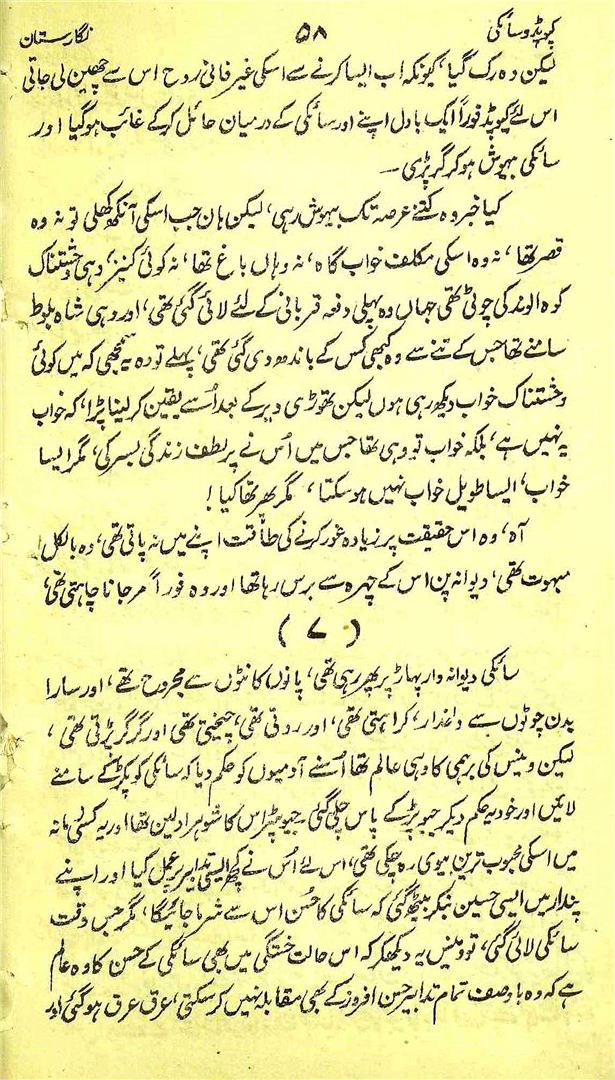 کیوپڈ و سائکی ۵۸ نگارستان
لیکن وہ رک گیا، کیونکہ اب ایسا کرنے سے اسکی غیر فانی روح اس سے چھین لی جاتی
اس لئے کیوپڈ فوراً ایک بادل اپنے اور سائکی کے درمیان حائل کر کے غائب ہو گیا اور
سائکی بیہوش ہو کر گر پڑی۔
کیا خبر وہ کتنے عرصہ تک بیہوش رہی، لیکن ہاں جب اسکی آنکھ کھلی تو نہ وہ
قصر تھا، نہ وہ اسکی مکلف خواب گاہ، نہ وہاں باغ تھا، نہ کوئی کنیز، وہی وحشتناک
کوہ الوند کی چوٹی تھی جہاں وہ پہلی دفعہ قربانی کے لئے لائی گئی تھی، اور وہی شاہ بلوط
سامنے تھا جس کے تنے سے وہ کبھی کس کے باندھ دی گئی تھی، پہلے تو وہ یہ سمجھی کہ میں کوئی
وحشتناک خواب دیکھ رہی ہوں لیکن تھوڑی دیر کے بعد اُسے یقین کر لینا پڑا، کہ خواب
یہ نہیں ہے، بلکہ خواب تو وہی تھا جس میں اُس نے پر لطف زندگی بسر کی، مگر ایسا
خواب، ایسا طویل خواب نہیں ہو سکتا، مگر پھر تھا کیا!
آہ، وہ اس حقیقت پر زیادہ غور کرنے کی طاقت اپنے میں نہ پاتی تھی، وہ بالکل
مبہوت تھی، دیوانہ پن اس کے چہرہ سے برس رہا تھا اور وہ فوراً مر جانا چاہتی تھی،
(۷)
سائکی دیوانہ وار پہاڑ پر پھر رہی تھی، پانوں کانٹوں سے مجروح تھے، اور سارا
بدن چوٹوں سے داغدار، کراہتی تھی، اور روتی تھی، چیختی تھی اور گر گر پڑتی تھی،
لیکن وینس کی برہمی کا وہی عالم تھا اُسنے آدمیوں کو حکم دیا کہ سائکی کو پکڑ کے سامنے
لائیں اور خود یہ حکم دیکر جیوپیٹر کے پاس چلی گئی۔ جیوپیٹر اس کا شوہر اولین تھا اور یہ کسی زمانہ
میں اسکی محبوب ترین بیوی رہ چکی تھی، اس لئے اُس نے کچھ ایسی تدابیر پر عمل کیا اور اپنے
پندار میں ایسی حسین بنکر بیٹھ گئی کہ سائکی کا حُسن اس سے شرما جائیگا، مگر جس وقت
سائکی لائی گئی، تو وینس یہ دیکھکر کہ اس حالت خستگی میں بھی سائکی کے حسن کا وہ عالم
ہے کہ وہ باوصف تمام تدابیر حسن افروز کے بھی مقابلہ نہیں کر سکتی، عرق عرق ہو گئی اور